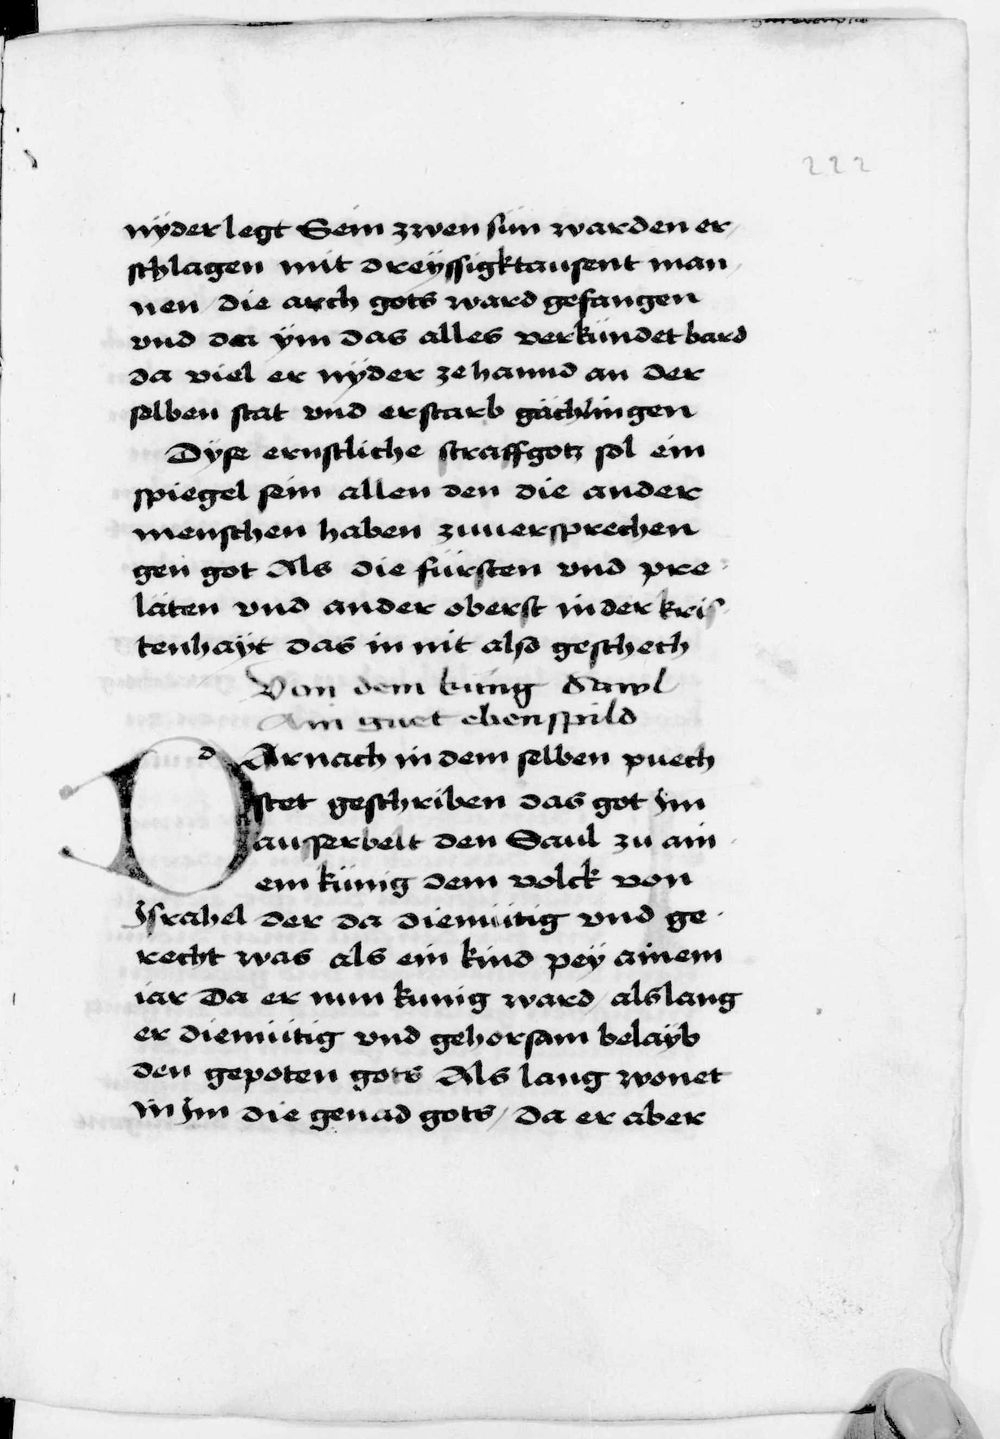 222
nÿder legt Sein zwen sün warden er
schlagen mit dreÿssigktausent man
nen / die arch gots ward gefangen
vnd da ÿm das alles verkündet bard
da viel er nÿder zehannd an der
selben stat vnd erstarb gächlingen
Dÿse ernstliche straff gotz sol ein
spiegel sein allen den die ander
menschen haben zuuersprechen
gen got Als die fürsten vnd pre
läten vnd ander oberst in der kris
tenhaÿt das in nit also geschech
Von dem küng Sawl
Ain guet ebenspild
DArnach in dem selben puech
stet geschriben das got Im
auserbelt den Saul zu ain
em künig dem volck von
Israhel der da diemütig vnd ge
recht was als ein kind peÿ ainem
iar Da er nun kunig ward / als lang
er diemütig vnd gehorsam belaÿb
den gepoten gots Als lang wonet
in Im die genad gots / da er aber